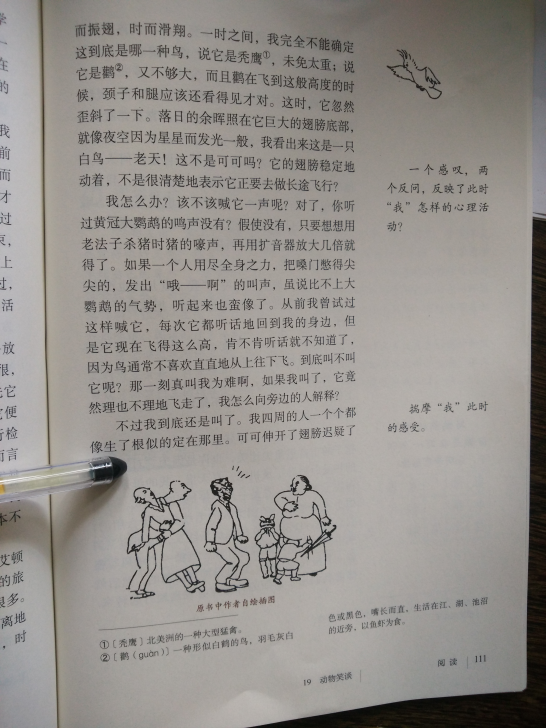 而振翅，时而滑翔。一时之间，我完全不能确定
这到底是哪一种鸟，说它是秃鹰①，未免太重；说
它是鹳②，又不够大，而且鹳在飞到这般高度的时
候，颈子和腿应该还看得见才对。这时，它忽然
歪斜了一下。落日的余晖照在它巨大的翅膀底部，
就像夜空因为星星而发光一般，我看出来这是一只
白鸟——老天！这不是可可吗？它的翅膀稳定地
动着，不是很清楚地表示它正要去做长途飞行？
我怎么办？该不该喊它一声呢？对了，你听
过黄冠大鹦鹉的鸣声没有？假使没有，只要想想用
老法子杀猪时猪的嚎声，再用扩音器放大几倍就
得了。如果一个人用尽全身之力，把嗓门憋得尖
尖的，发出“哦——啊”的叫声，虽说比不上大
鹦鹉的气势，听起来也蛮像了。从前我曾试过
这样喊它，每次它都听话地回到我的身边，但
是它现在飞得这么高，肯不肯听话就不知道了，
因为鸟通常不喜欢直直地从上往下飞。到底叫不叫
它呢？那一刻真叫我为难啊，如果我叫了，它竟
然理也不理地飞走了，我怎么向旁边的人解释？
不过我到底还是叫了。我四周的人一个个都
像生了根似的定在那里。可可伸开了翅膀迟疑了
一个感叹，两
个反问，反映了此时
“我”怎样的心理活
动？
揣摩“我”此时
的感受。
原书中作者自绘插图
①［秃鹰］北美洲的一种大型猛禽。
②［鹳（guàn）］一种形似白鹤的鸟，羽毛灰白
色或黑色，嘴长而直，生活在江、湖、池沼
的近旁，以鱼虾为食。
19 动物笑谈
阅读 111